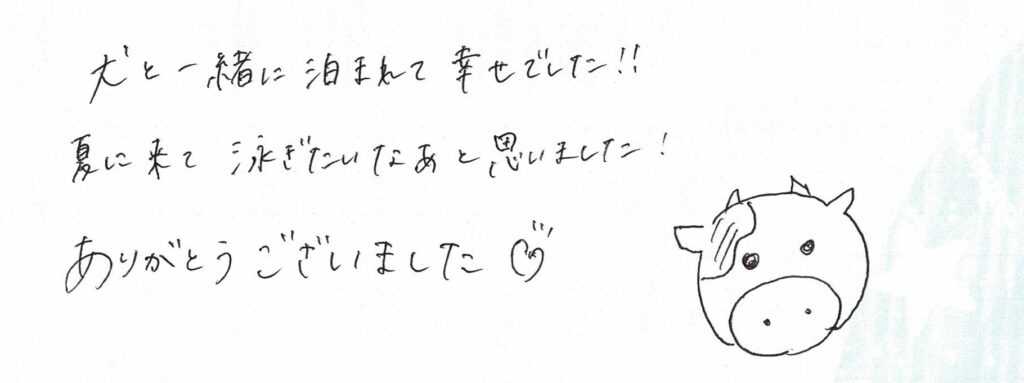 犬と一緒に泊まれて幸せでした!!
夏に来て泳ぎたいなあと思いました!
ありがとうございました♡